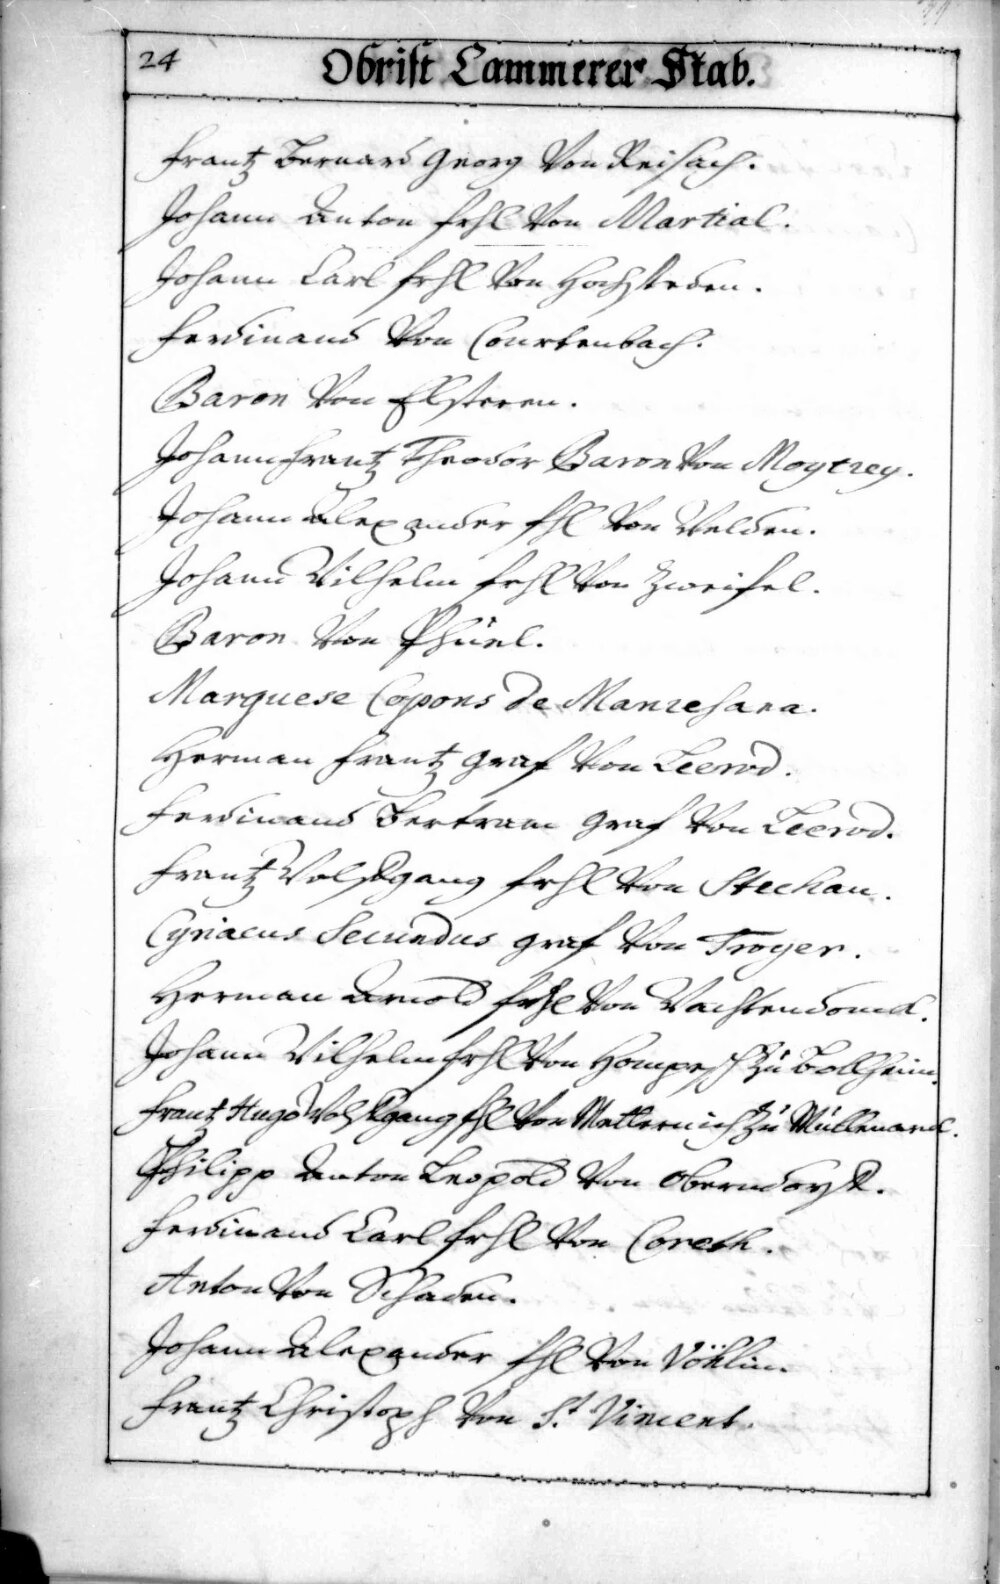 24 Obrist Cammerer Stab.
Frantz Bernard Georg Von Reisach.
Johann Anton frhl Von Martial.
Johann Carl frhl Von Hochsteden.
Ferdinand Von Courtenbach.
Baron Von Elsteren.
Johann Frantz Theodor Baron Von Moytrey.
Johann Alexander fhl Von Velden.
Johann Wilhelm frhl Von Zweifel.
Baron Von Phüel.
Marquese Copons de Manresana.
Herman Frantz Graf Von Leerod.
Ferdinand Bertram Graf Von Leerod.
Frantz Wolfgang frhl Von Stechau.
Cyriacus Secundus Graf Von Troyer.
Herman Arnold frhl Von Wachtendonck.
Johann Wilhelm frhl Von Hompesch zu Bollheim.
Frantz Hugo Wolfgang fhl Von Metternich zu Müllenarck.
Philipp Anton Leopold Von Oberndorff.
Ferdinand Carl frhl Von Coreth.
Anton Von Schaden.
Johann Alexander fhl Von Vöhlin.
Frantz Christoph Von St Vincent.